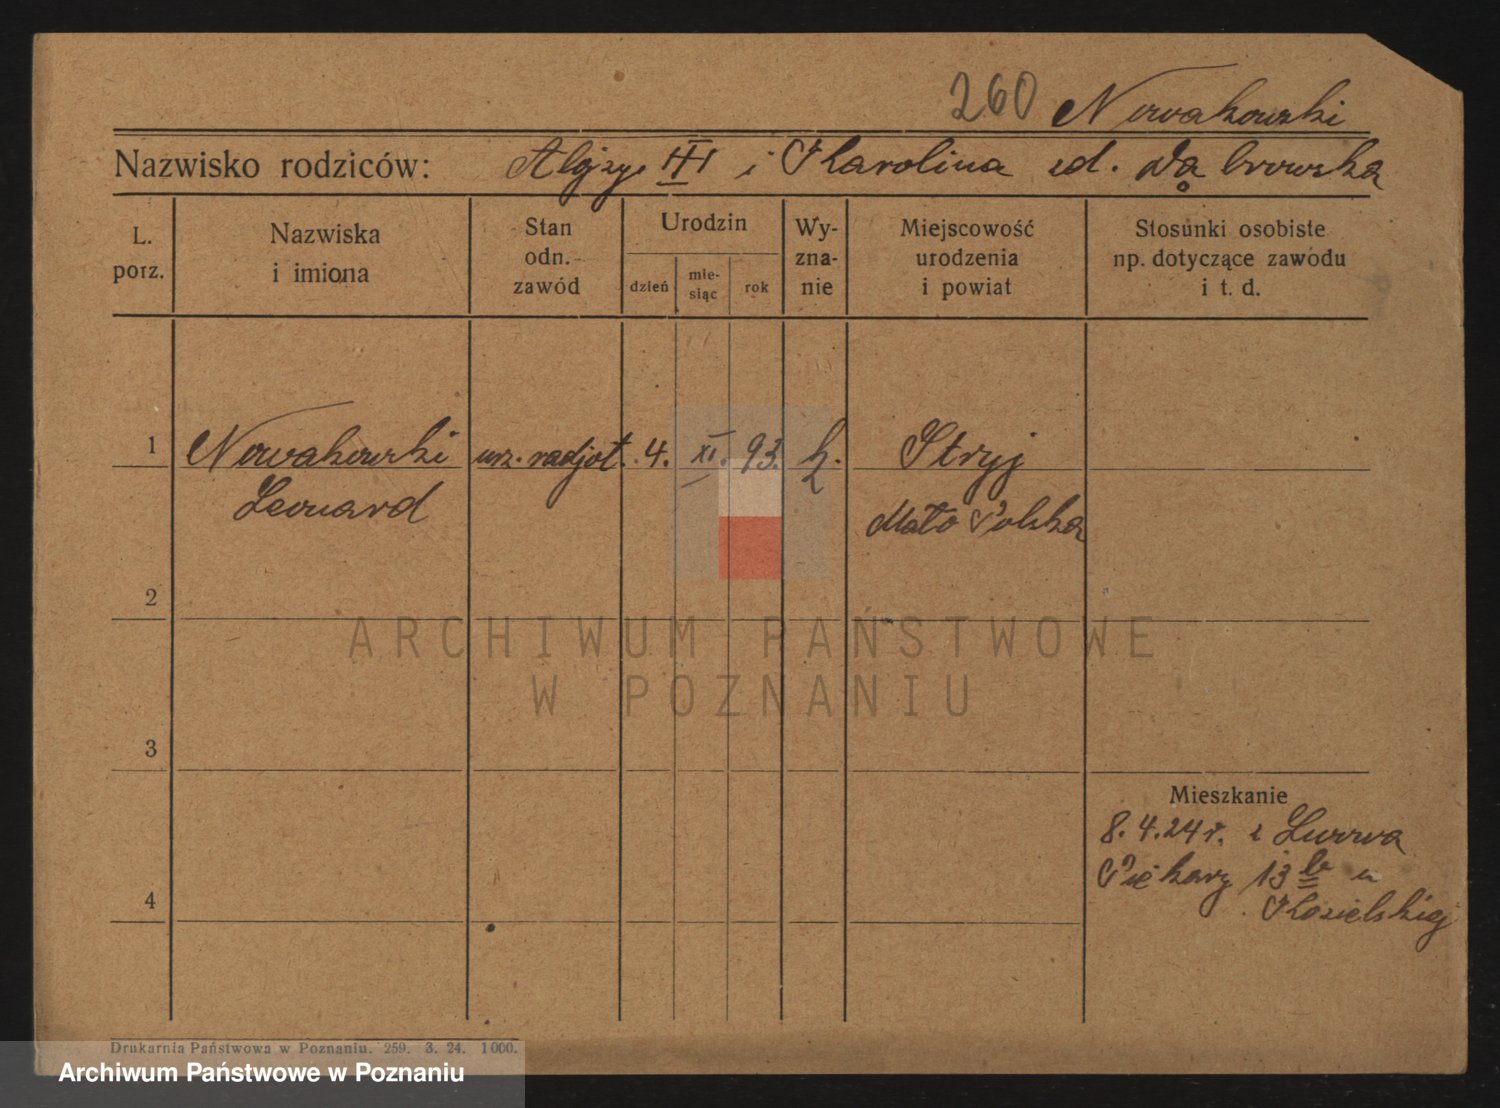 260 Nowakowski
Nazwisko rodziców: Alojzy i Karolina zd. Dąbrowska
L. porz.
Nazwiska i imiona
Stan odn. zawód
Urodzin
dzień
mie-siąc
rok
Wy-zna-nie
Miejscowość urodzenia i powiat
Stosunki osobiste np. dotyczące zawodu i t. d.
1 Nowakowski urz. 4. XI. 93. k. Stryj
Leonard Mało Polska
2
ARCHIWUM PAŃSTWOWE
W POZNANIU
3
Mieszkanie
8.4.24 r. z Lwowa
Piekary 13 b u
4
Kozielskiej
Drukarnia Państwowa w Poznaniu. 259. 3. 24. 1000.
Archiwum Państwowe w Poznaniu